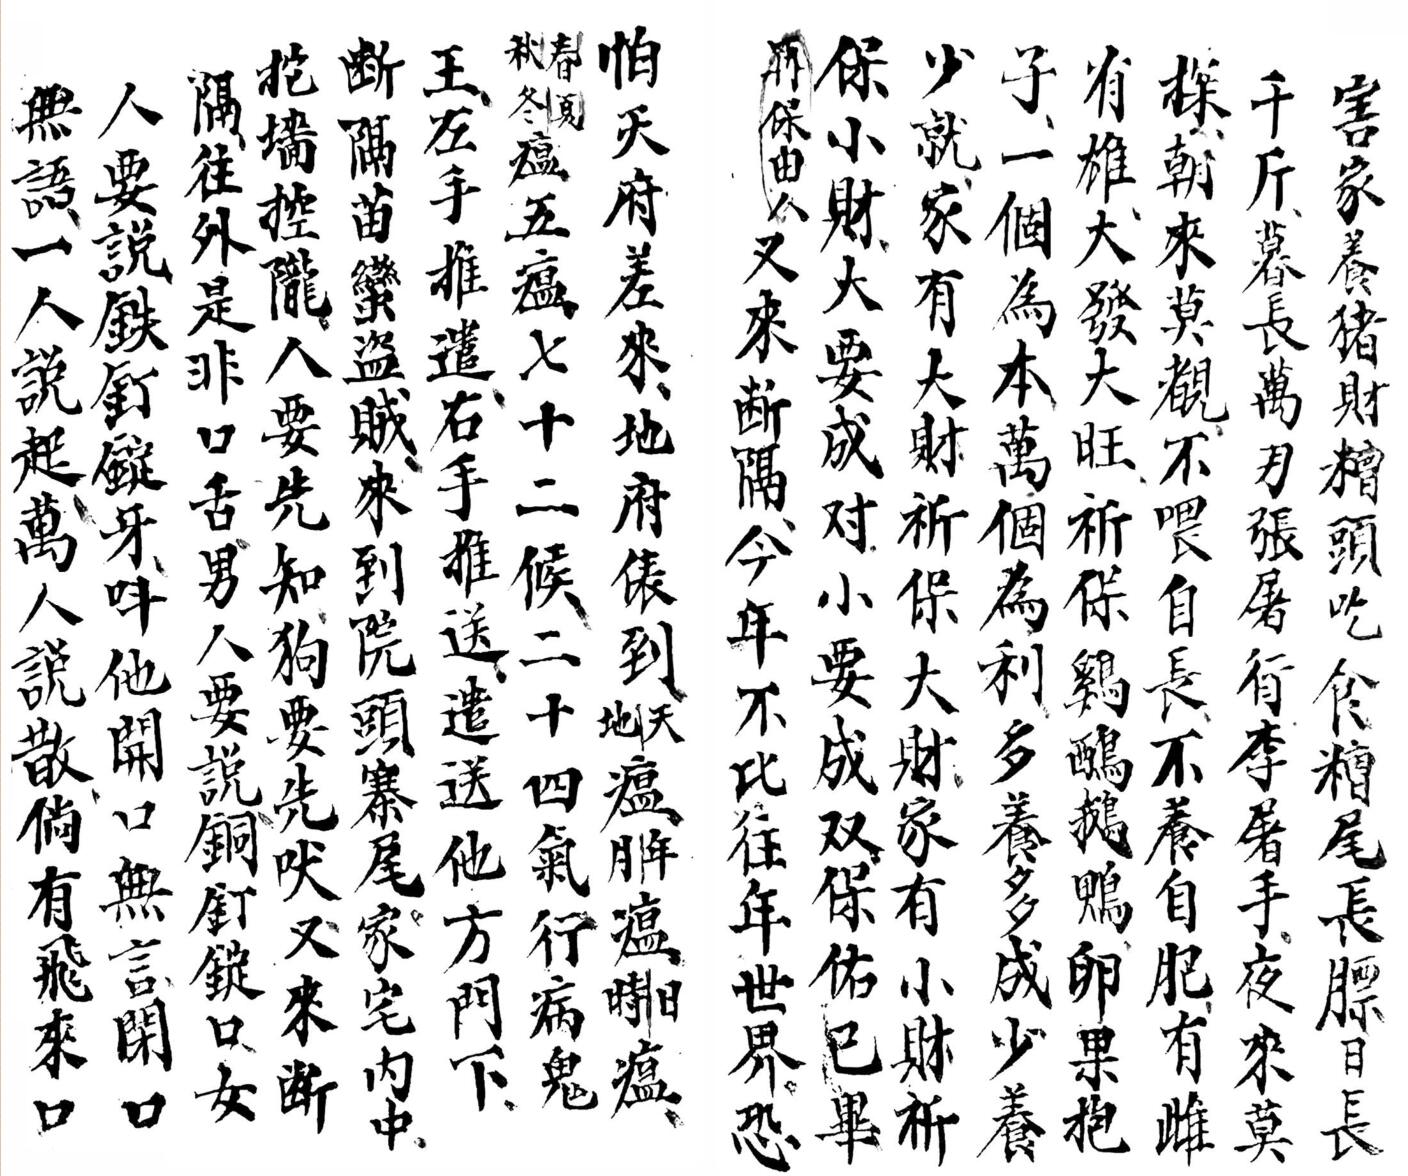 害家養猪財糟頭吃食糟尾長長膘日長
千斤、暮長萬刃張屠行李屠手、夜來莫
探、朝來莫覩、不喂自長、不養自肥、有雌
有雄、大發大旺、祈保鷄鵝鴨卵果抱
子、一個為本萬個為利多養多成少養
少就、家有大財祈保大財、家有小財祈
保小財、大要成对、小要成双、保佑已畢
保由人又來断隔、今年不比往年世界、恐
怕天府差來、地府俵到天地瘟、年瘟、日時瘟、
春夏秋冬瘟、五瘟、七十二候、二十四氣行病鬼
王、左手推遣、右手推送、遣送他方門下、
断隔苗蠻盜賊、來到院頭寨尾家宅内中、
挖墻控隴、人要先知狗要先吠又來断
隔、往外是非口舌男人要説銅釘錠口、女
人要説鉄釘錠牙、呌他開口無言閉口
無語、一人説起萬人説散、倘有飛來口